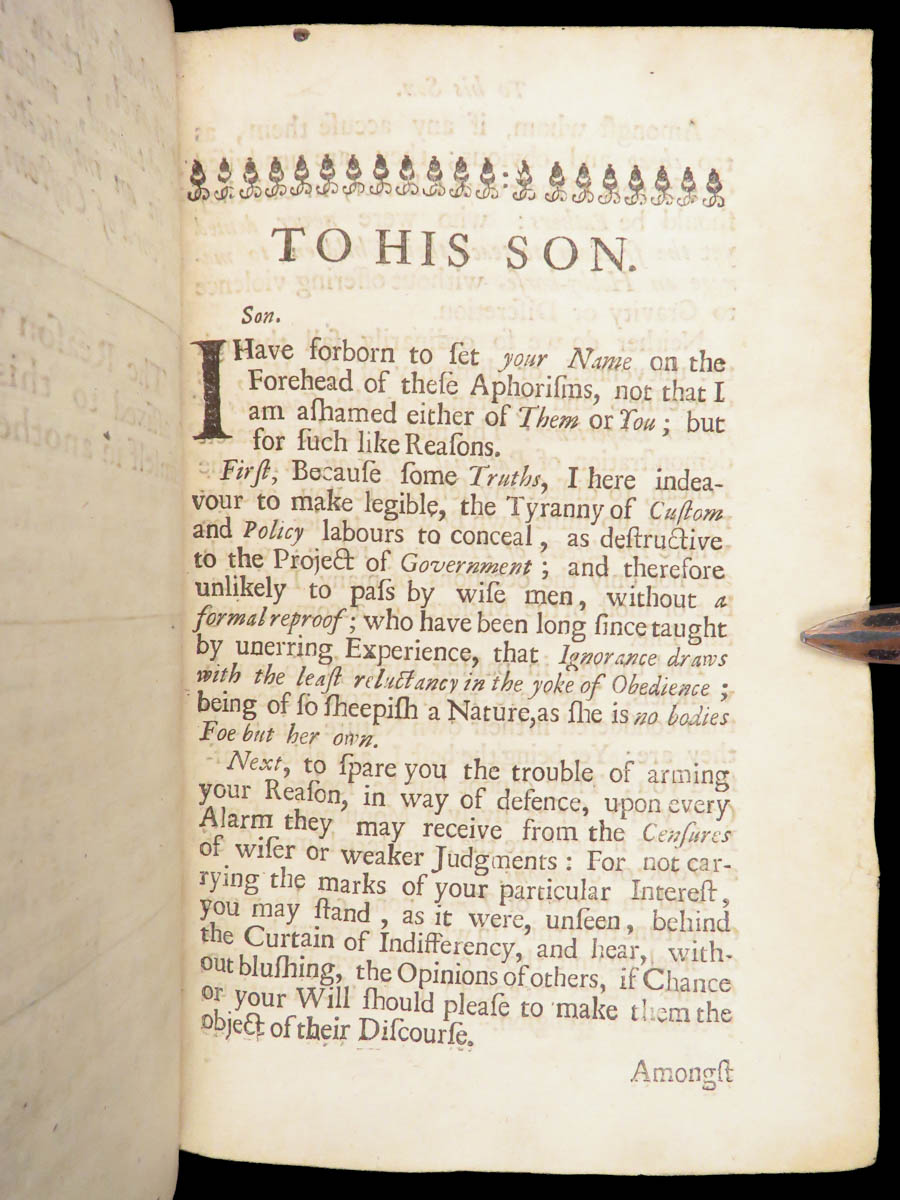 TO HIS SON.
Son.
I Have forborn to ſet your Name on the
Forehead of theſe Aphoriſms, not that I
am aſhamed either of Them or You; but
for ſuch like Reaſons.
Firſt, Becauſe ſome Truths, I here indea-
vour to make legible, the Tyranny of Cuſtom
and Policy labours to conceal, as deſtructive
to the Project of Government; and therefore
unlikely to paſs by wiſe men, without a
formal reproof; who have been long ſince taught
by unerring Experience, that Ignorance draws
with the leaſt reluctancy in the yoke of Obedience;
being of ſo ſheepiſh a Nature, as ſhe is no bodies
Foe but her own.
Next, to ſpare you the trouble of arming
your Reaſon, in way of defence, upon every
Alarm they may receive from the Cenſures
of wiſer or weaker Judgments: For not car-
rying the marks of your particular Intereſt,
you may ſtand, as it were, unſeen, behind
the Curtain of Indifferency, and hear, with-
out bluſhing, the Opinions of others, if Chance
or your Will ſhould pleaſe to make them the
object of their Diſcourſe.
Amongſt